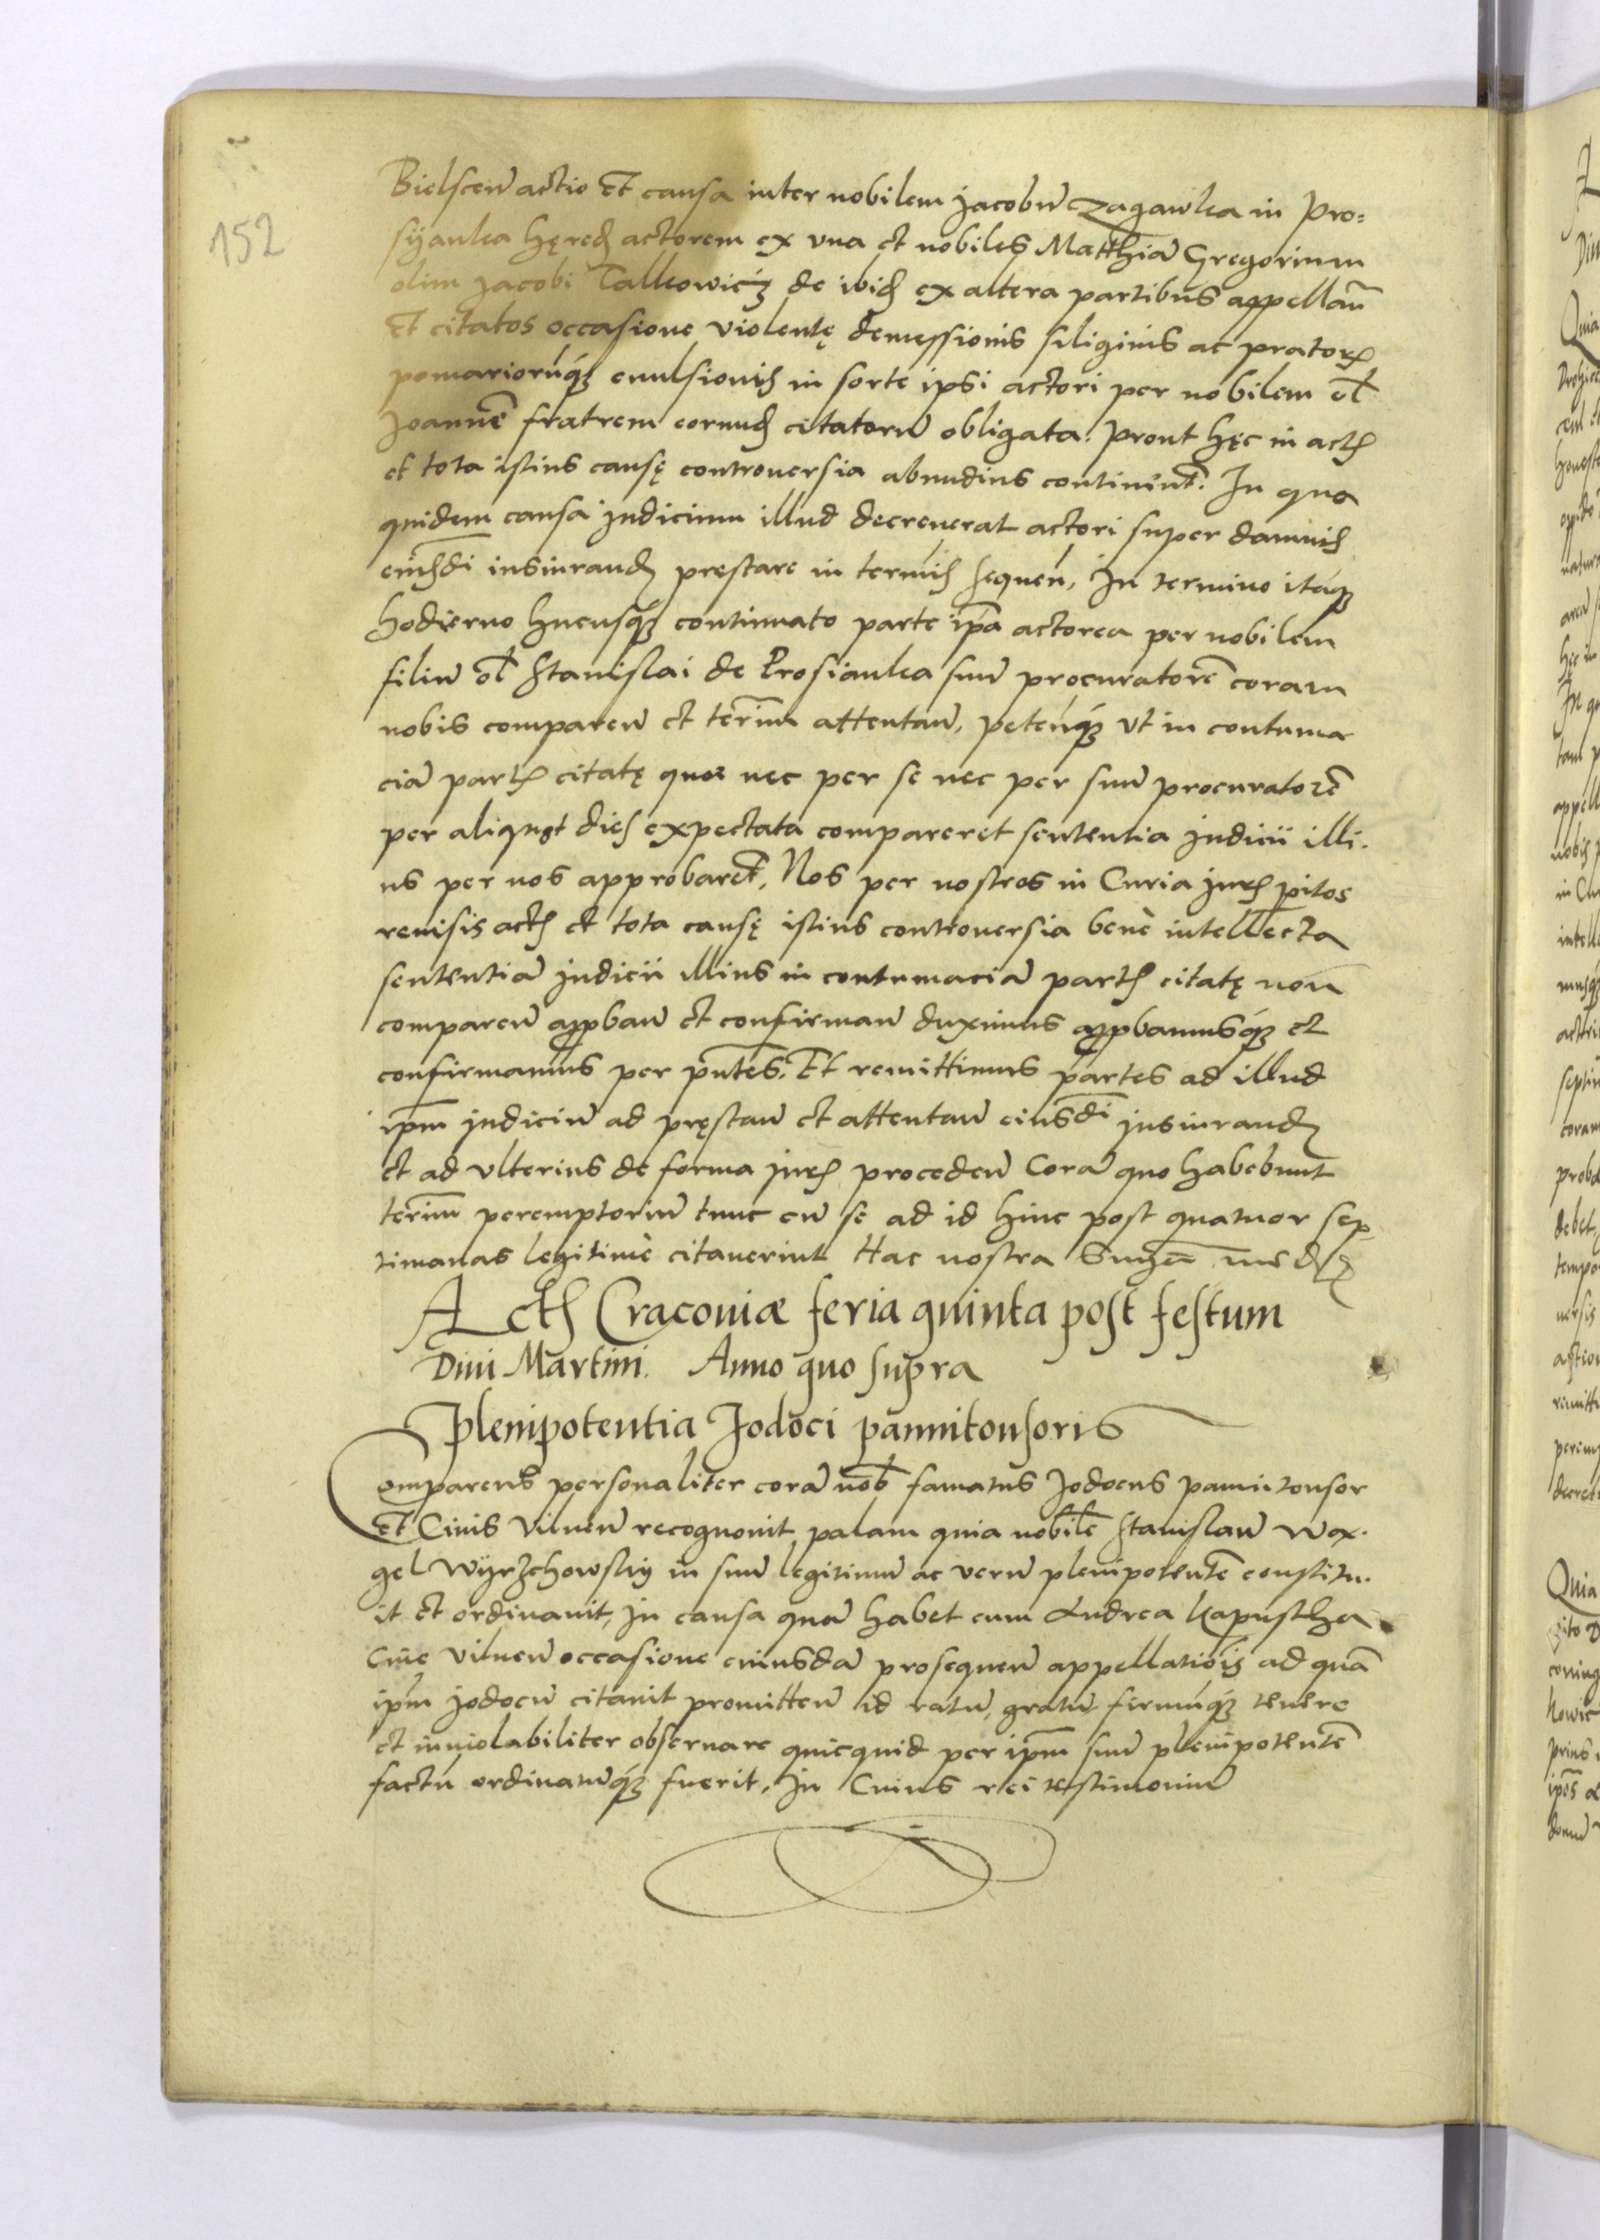 152
Bielscen̄ actio et causa inter nobilem Jacobū Zagawka in Pro=
syanka hęred actorem ex vna et nobiles Matthiā Gregorium
olim Jacobi Talkowicz de ibid ex altera partibus appellan̄
et citatos occasione violentę demessionis siliginis ac pratorꝝ
pomariorūq́ꝫ euulsionis in sorte ipsi actori per nobilem ol̄
Joannē fratrem eorund citatorū obligata: prout hęc in actis
et tota istius causę controuersia abundius continent̄. In qua
quidem causa Judicium illud decreuerat actori super damnis
insiurand pręstare in termis sequen̄, In termino itaq́ꝫ
hodierno hucusq́ꝫ continuato parte ip̄a actorea per nobilem
filiū ol̄ Stanislai de Prosianka suū procuratorē coram
nobis comparen̄ et term̄m attentan̄, peten̄q́ꝫ vt in contuma
ciā partis citatę quae nec per se nec per suū procuratorē
per aliquot dies expectata compareret sententia Judicii illi.
us per nos approbaret̄, Nos per nostros in Curia juris pitos
reuisis actis et tota causę istius controuersia benè intellecta
sententiā Judicii illius in contumaciā partis citatę non
comparen̄ appban̄ et confirman̄ duximus appbamusq́ꝫ et
confirmamus per pn̄tes. Et remittimus partes ad illud
ip̄m Judiciū ad pręstan̄ et attentan̄ eiusdi Jusiurand
et ad vlterius de forma juris proceden̄ Corā quo habebunt
term̄m peremptoriū tunc cū se ad id hinc post quatuor sep
timanas legitimè citauerint Hac nostra
Actis Cracoviæ feria quinta post festum
Diui Martini. Anno quo supra
Plenipotentia Jodoci pannitonsoris
Comparens personaliter corā nob̄ famatus Jodocus pannitonsor
et Ciuis Vilnen̄ recognouit palam quia nobilē Stanislaū Wox.
gel Wyrzchowsky in suū legitimū ac verū plenipotentē constitu.
it et ordinauit, in causa quā habet cum Andrea Kapustha
Ciue Vilnen̄ occasione cuiusdā prosequen̄ appellatiōis ad quā
ip̄m Jodocū citauit promitten̄ id ratū, gratū firmūq́ꝫ tenere
et inuiolabiliter obseruare quicquid per ip̄m suū plenipotentē
factū ordinatūq́ꝫ fuerit, In Cuius rei testimoniū